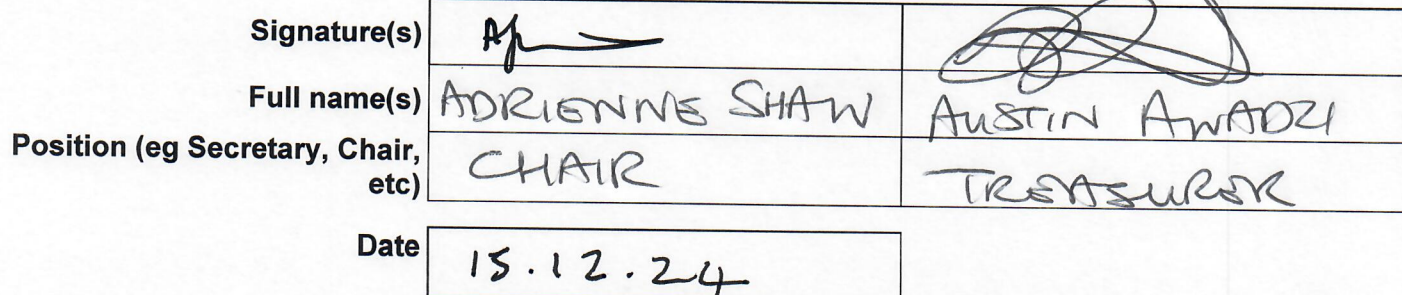 Signature(s)
Full name(s) ADRIENNE SHAW AUSTIN AWADZI
Position (eg Secretary, Chair,
etc) CHAIR TREASURER
Date 15.12.24